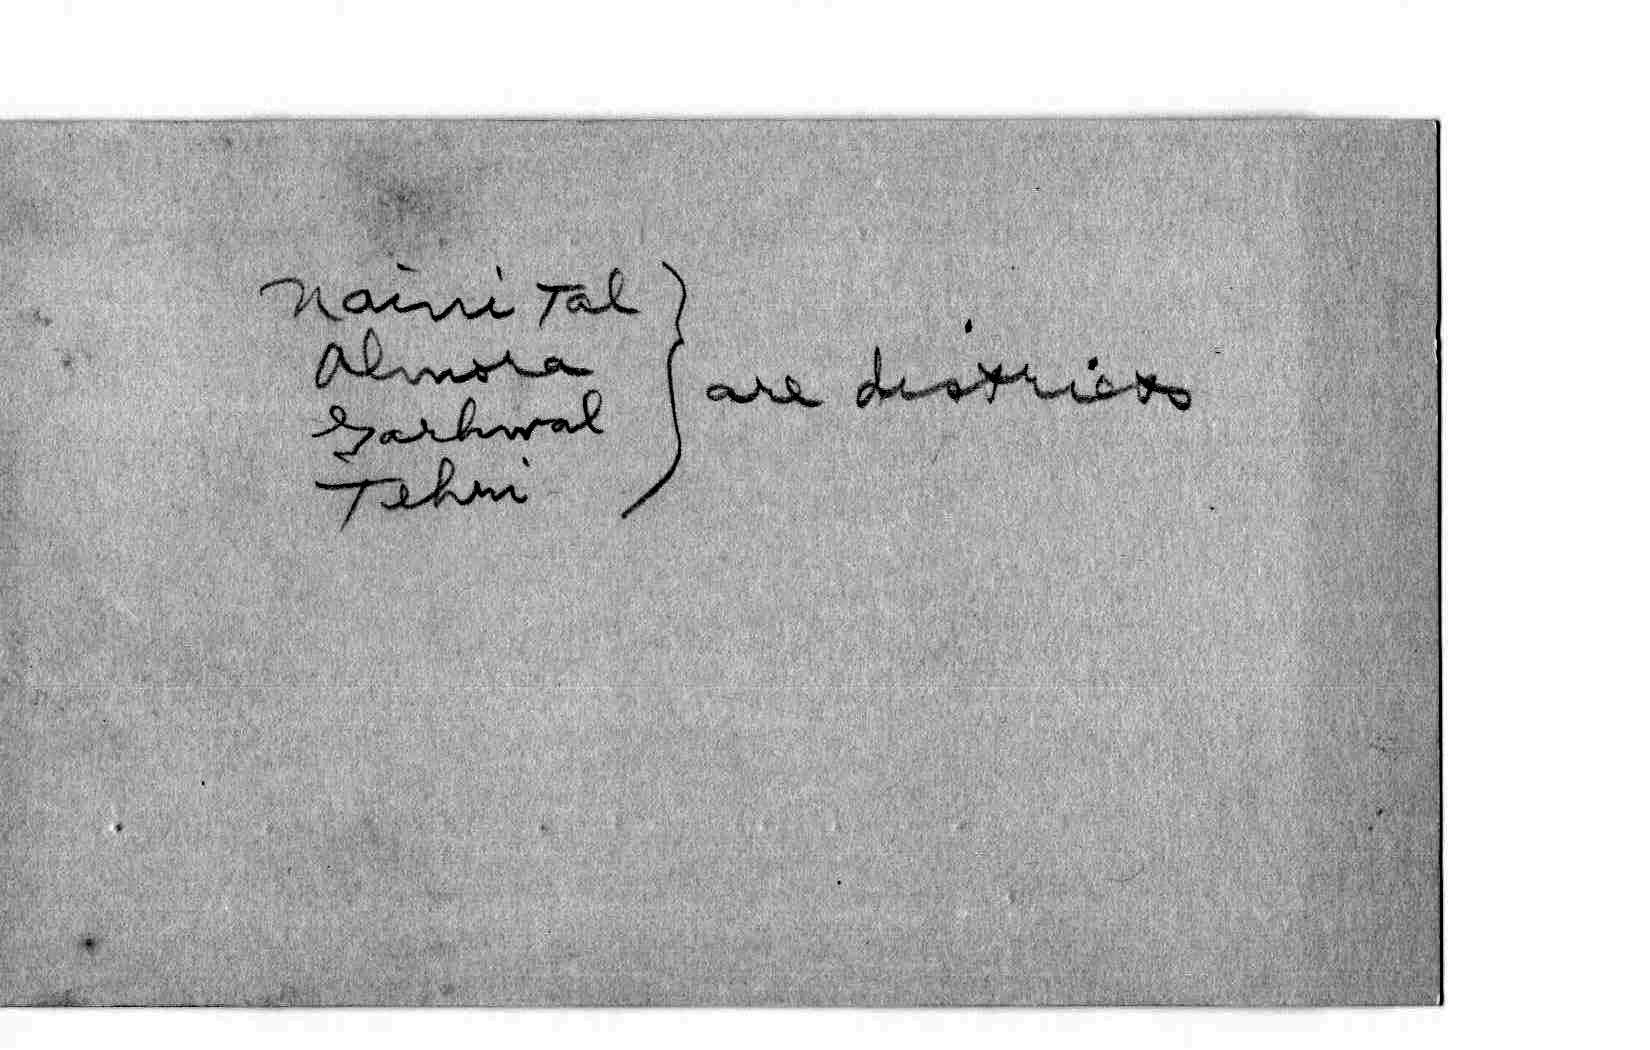 Naini Tal
Almora
Garhwal
Tehri
are districts